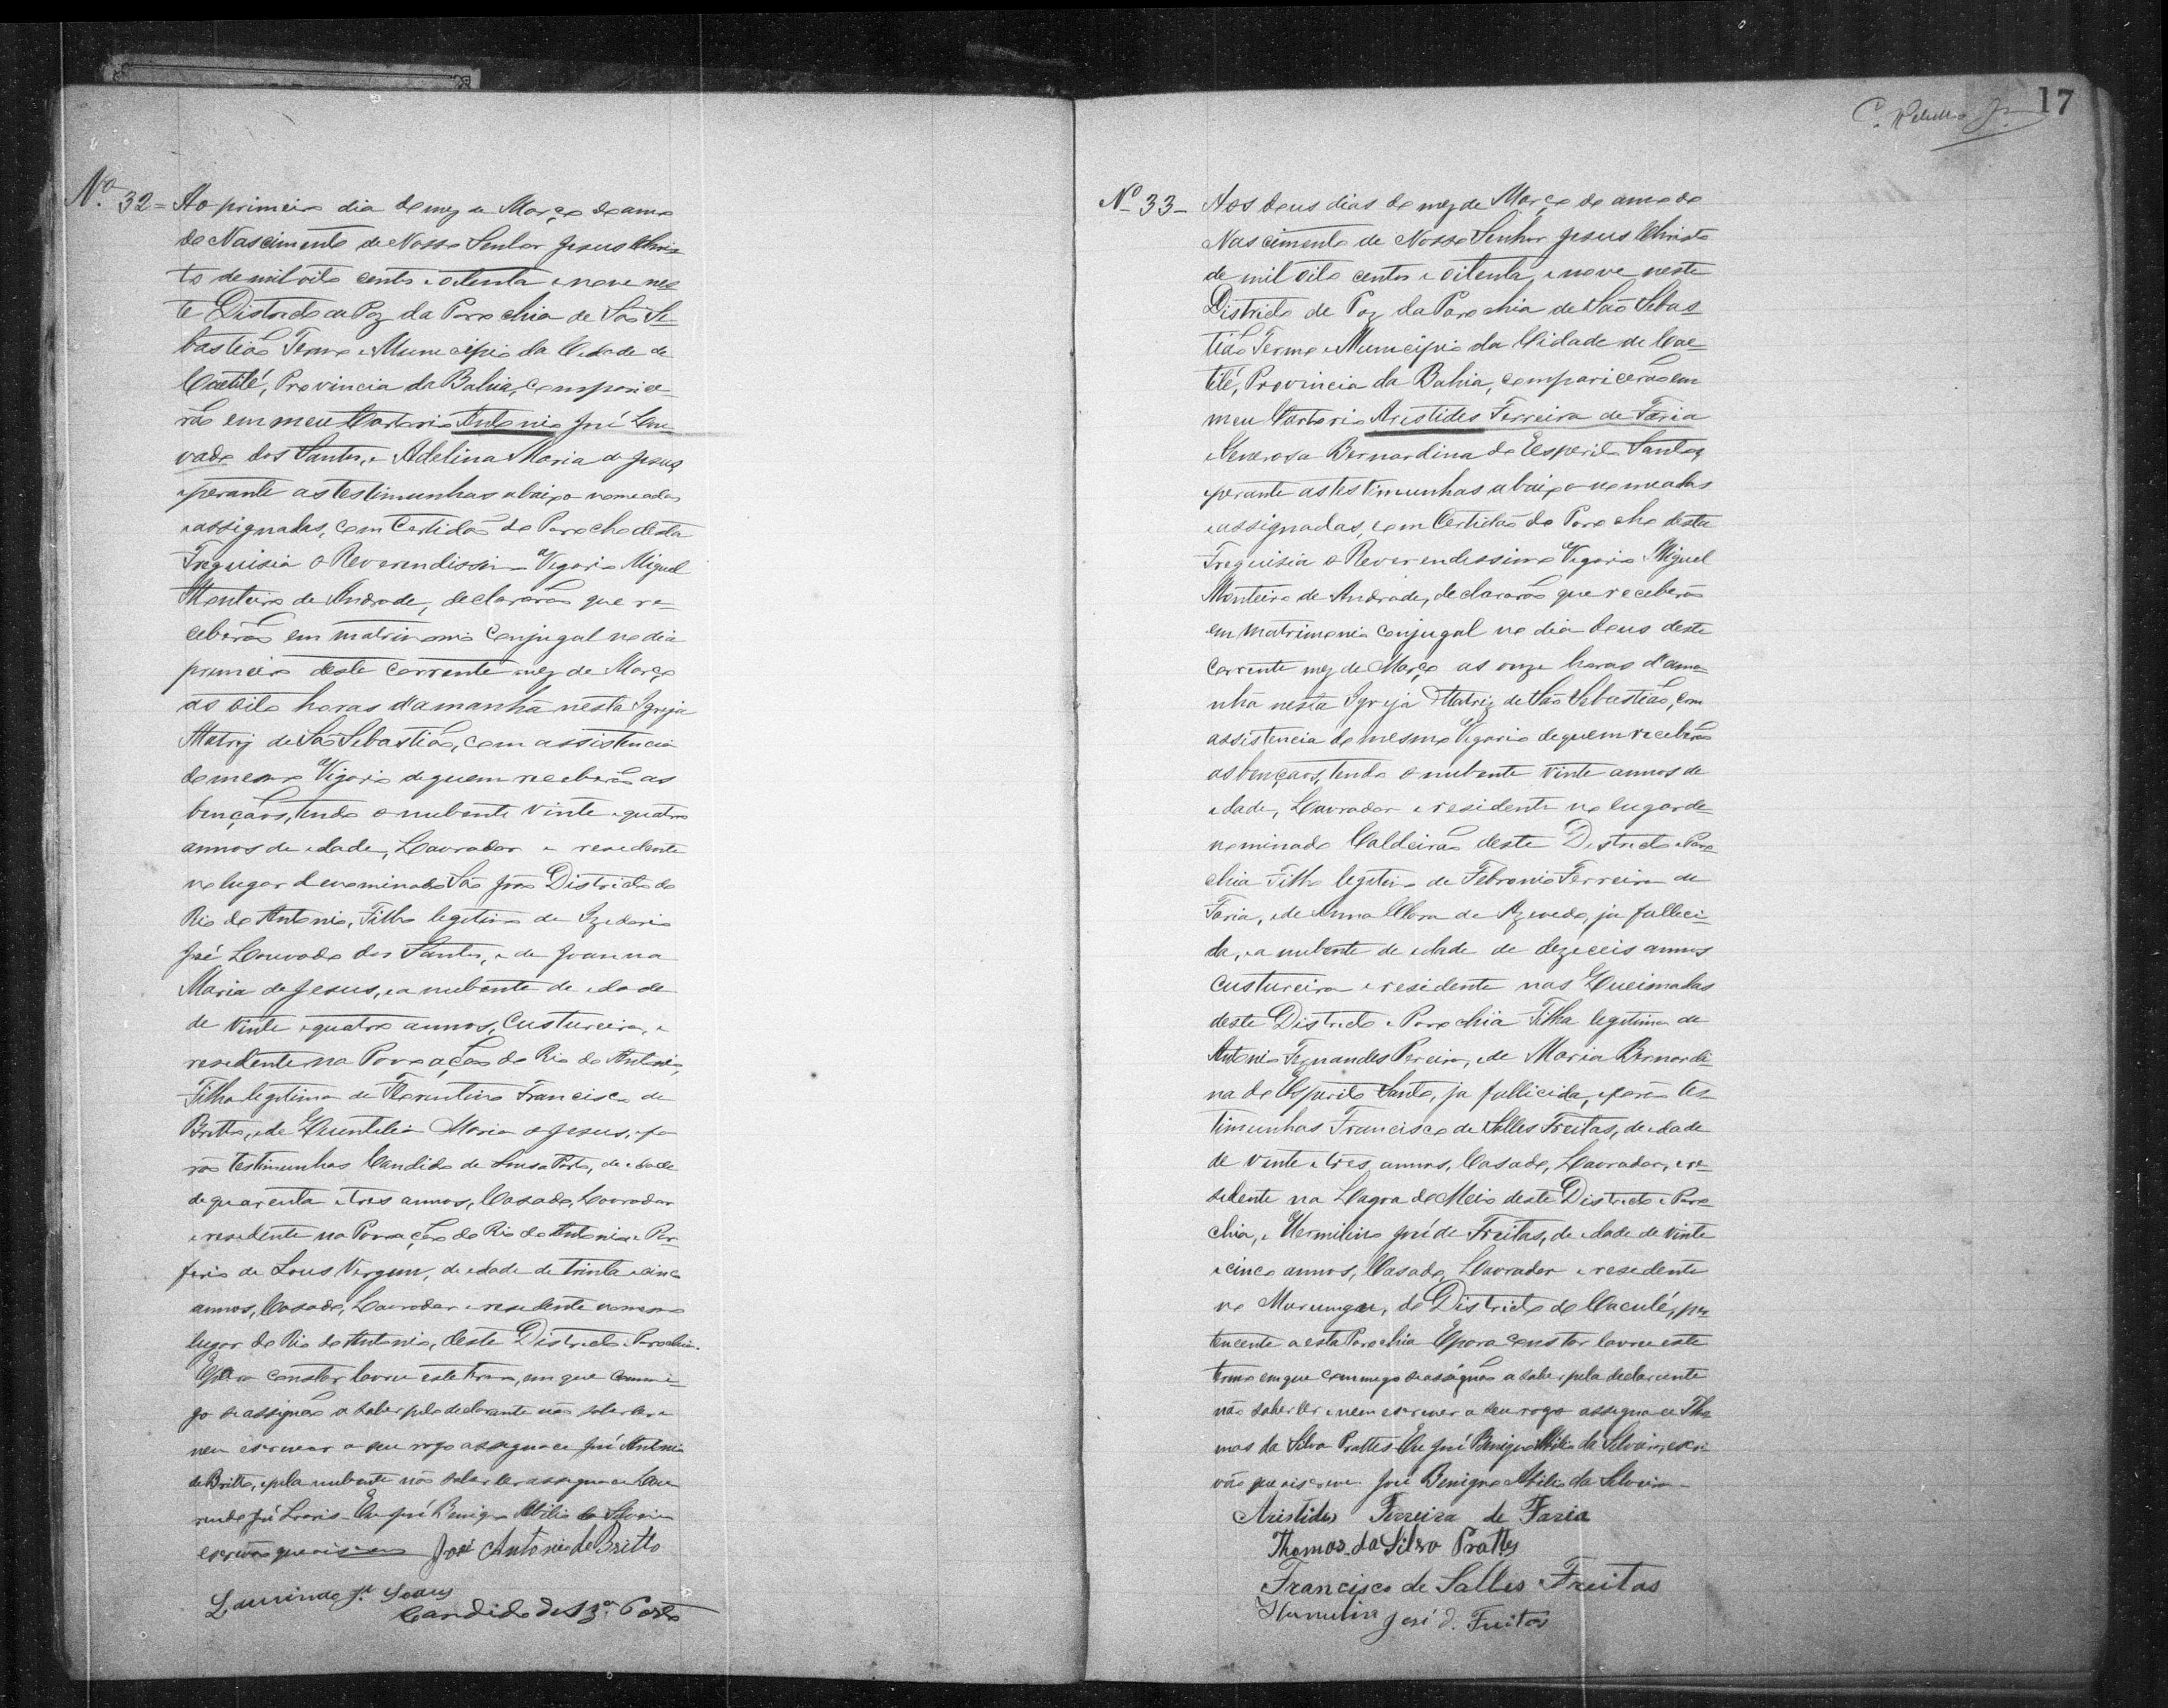 Nº 32 = Ao primeiro dia do mez de Março do anno
do Nascimento de Nosso Senhor Jesus Chris
to de mil oito centos e oitenta e nove nes
te Districto de Paz da Parochia de São Se
bastião Termo e Municipio da Cidade de
Caetité, Provincia da Bahia, comparice
rão em meu Cartorio Antonio José Lou
vado dos Santos, e Adelina Maria de Jesus
e perante as testimunhas abaixo nomeadas
e assignadas, com Certidão do Parocho desta
Freguisia o Reverendissimo Vigario Miguel
Monteiro de Andrade, declararão que re
ceberão em matrimonio conjugal no dia
primeiro deste corrente mez de Março
as oito horas d'amanhã nesta Igreja
Matriz de São Sebastião, com assistencia
do mesmo Vigario de quem receberão as
bençãos, tendo o nubente vinte e quatro
annos de edade, Lavrador e residente
no lugar denominado São João Districto do
Rio do Antonio, Filho legitimo de Izidorio
José Louvado dos Santos, e de Joanna
Maria de Jesus, e a nubente de edade
de vinte e quatro annos, Custureira, e
residente na Povoação do Rio do Antonio,
Filha legitima de Florentino Francisco de
Britto, e de Quintilia Maria de Jesus, e fo
rão testimunhas Candido de Sousa Porto, de edade
de quarenta e tres annos, Casado, Lavrador
e residente na Povoação do Rio do Antonio e Por
firio de Sous, de edade de trinta e cinco
annos, Casado, Lavrador e residente no mesmo
lugar do Rio do Antonio, deste Districto e Parochia.
E para constar lavrei este termo, em que commi
go se assignão a saber pelo declarante não saber ler e
nem escrever a seu rogo assigna-ce José Antonio
de Britto, e pela nubente não saber ler assigna-ce Lau
rindo José Eu José Benigno Abilio da Silveira
escrivão que escrevi José Antonio de Britto
Laurindo Je.
Candido de Sza. Porto
17
Nº 33 - Aos dous dias do mez de Março do anno do
Nascimento de Nosso Senhor Jesus Christo
de mil oito centos e oitenta, e nove neste
Districto de Paz da Parochia de São Sebas
tião Termo e Municipio da Cidade de Cae
tité, Provincia da Bahia, compariceraõ em
meu Cartorio Aristides Ferreira de Faria
e Generosa Bernardina do Esperito Santo,
e perante as testimunhas abaixo nomeadas
e assignadas, com Certidão do Parocho desta
Freguisia o Reverendissimo Vigario Miguel
Monteiro de Andrade, declararão que receberão
em matrimonio conjugal no dia dous deste
corrente mez de Março as onze horas d'ama
nhã nesta Igreja Matriz de São Sebastião, com
assistencia do mesmo Vigario de quem receberão
as bençaos, tendo o nubente vinte annos de
edade, Lavrador e residente no lugar de
nominado Caldeirão deste Districto e Paro
chia Filho legitimo de Febronio Ferreira de
Faria, e de Anna Clara de Azevedo, ja falleci
da, e a nubente de edade de dezeceis annos
custureira e residente nas Queimadas
deste Districto e Parochia Filha legitima de
Antonio Fernandes Pereira, e de Maria Bernardi
na do Esperito Santo, ja fallicida, e forão tes
timunhas Francisco de Salles Freitas, de edade
de vinte e tres annos, Casado, Lavrador, e re
sidente na Lagoa do Meio deste Districto e Paro
chia, e Hermilino José de Freitas, de edade de vinte
e cinco annos, Casado, Lavrador e residente
no do Districto de Caculé, per
tencente a esta Parochia E para constar lavrei este
termo em que commego se assignão a saber pela declarente
não saber ler e nem escrever a seu rogo assigna-ce Tho
mas da Silva Prattes Eu José Benigno Abilio da Silveira, escri
vão que escrevi. José Benigno Abilio da Silveira
Aristides Ferreira de Faria
Thomas da Silva Prattes
Francisco de Salles Freitas
José d. Freitas